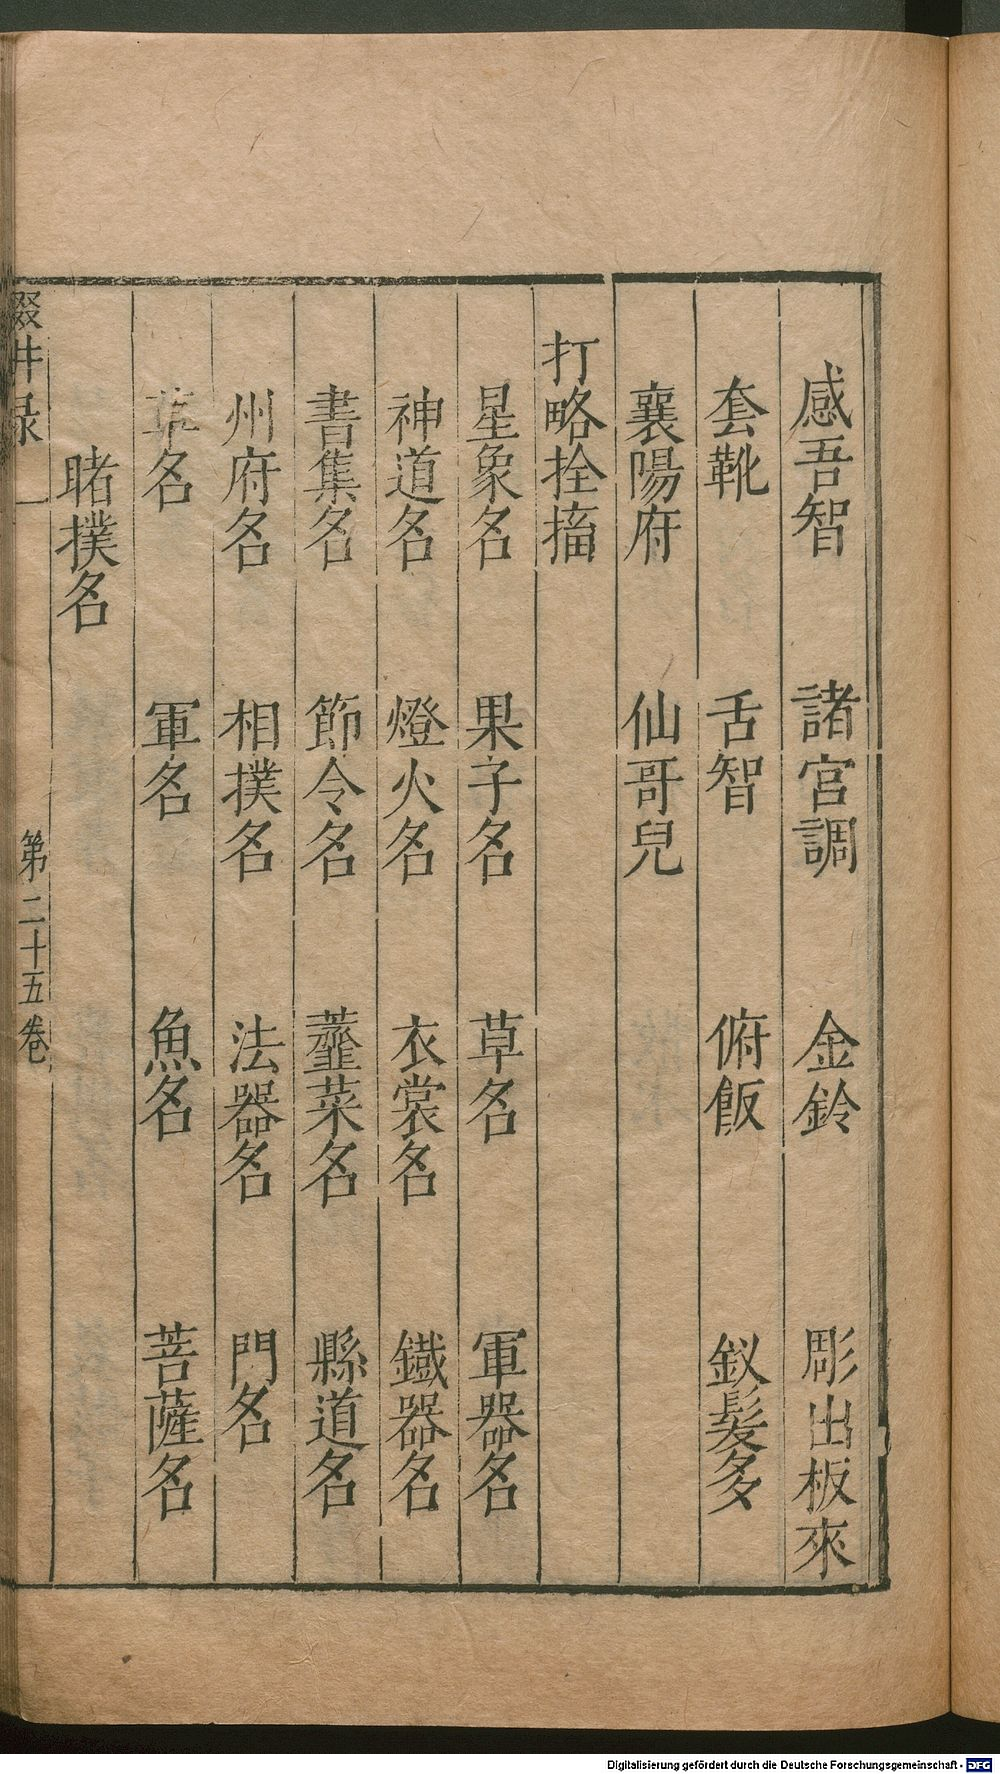 感吾智 諸宮調 金鈴 彫出板來
套靴 舌智 俯飯 釵髮多
襄陽府 仙哥兒
打略拴搐
星象名 果子名 草名 軍器名
神道名 燈火名 衣裳名 鐵器名
書集名 節令名 虀菜名 縣道名
州府名 相撲名 法器名 門名
草名 軍名 魚名 菩薩名
賭撲名
輟耕录 一 第二十五卷
Digitalisierung gefördert durch die Deutsche Forschungsgemeinschaft - DFG